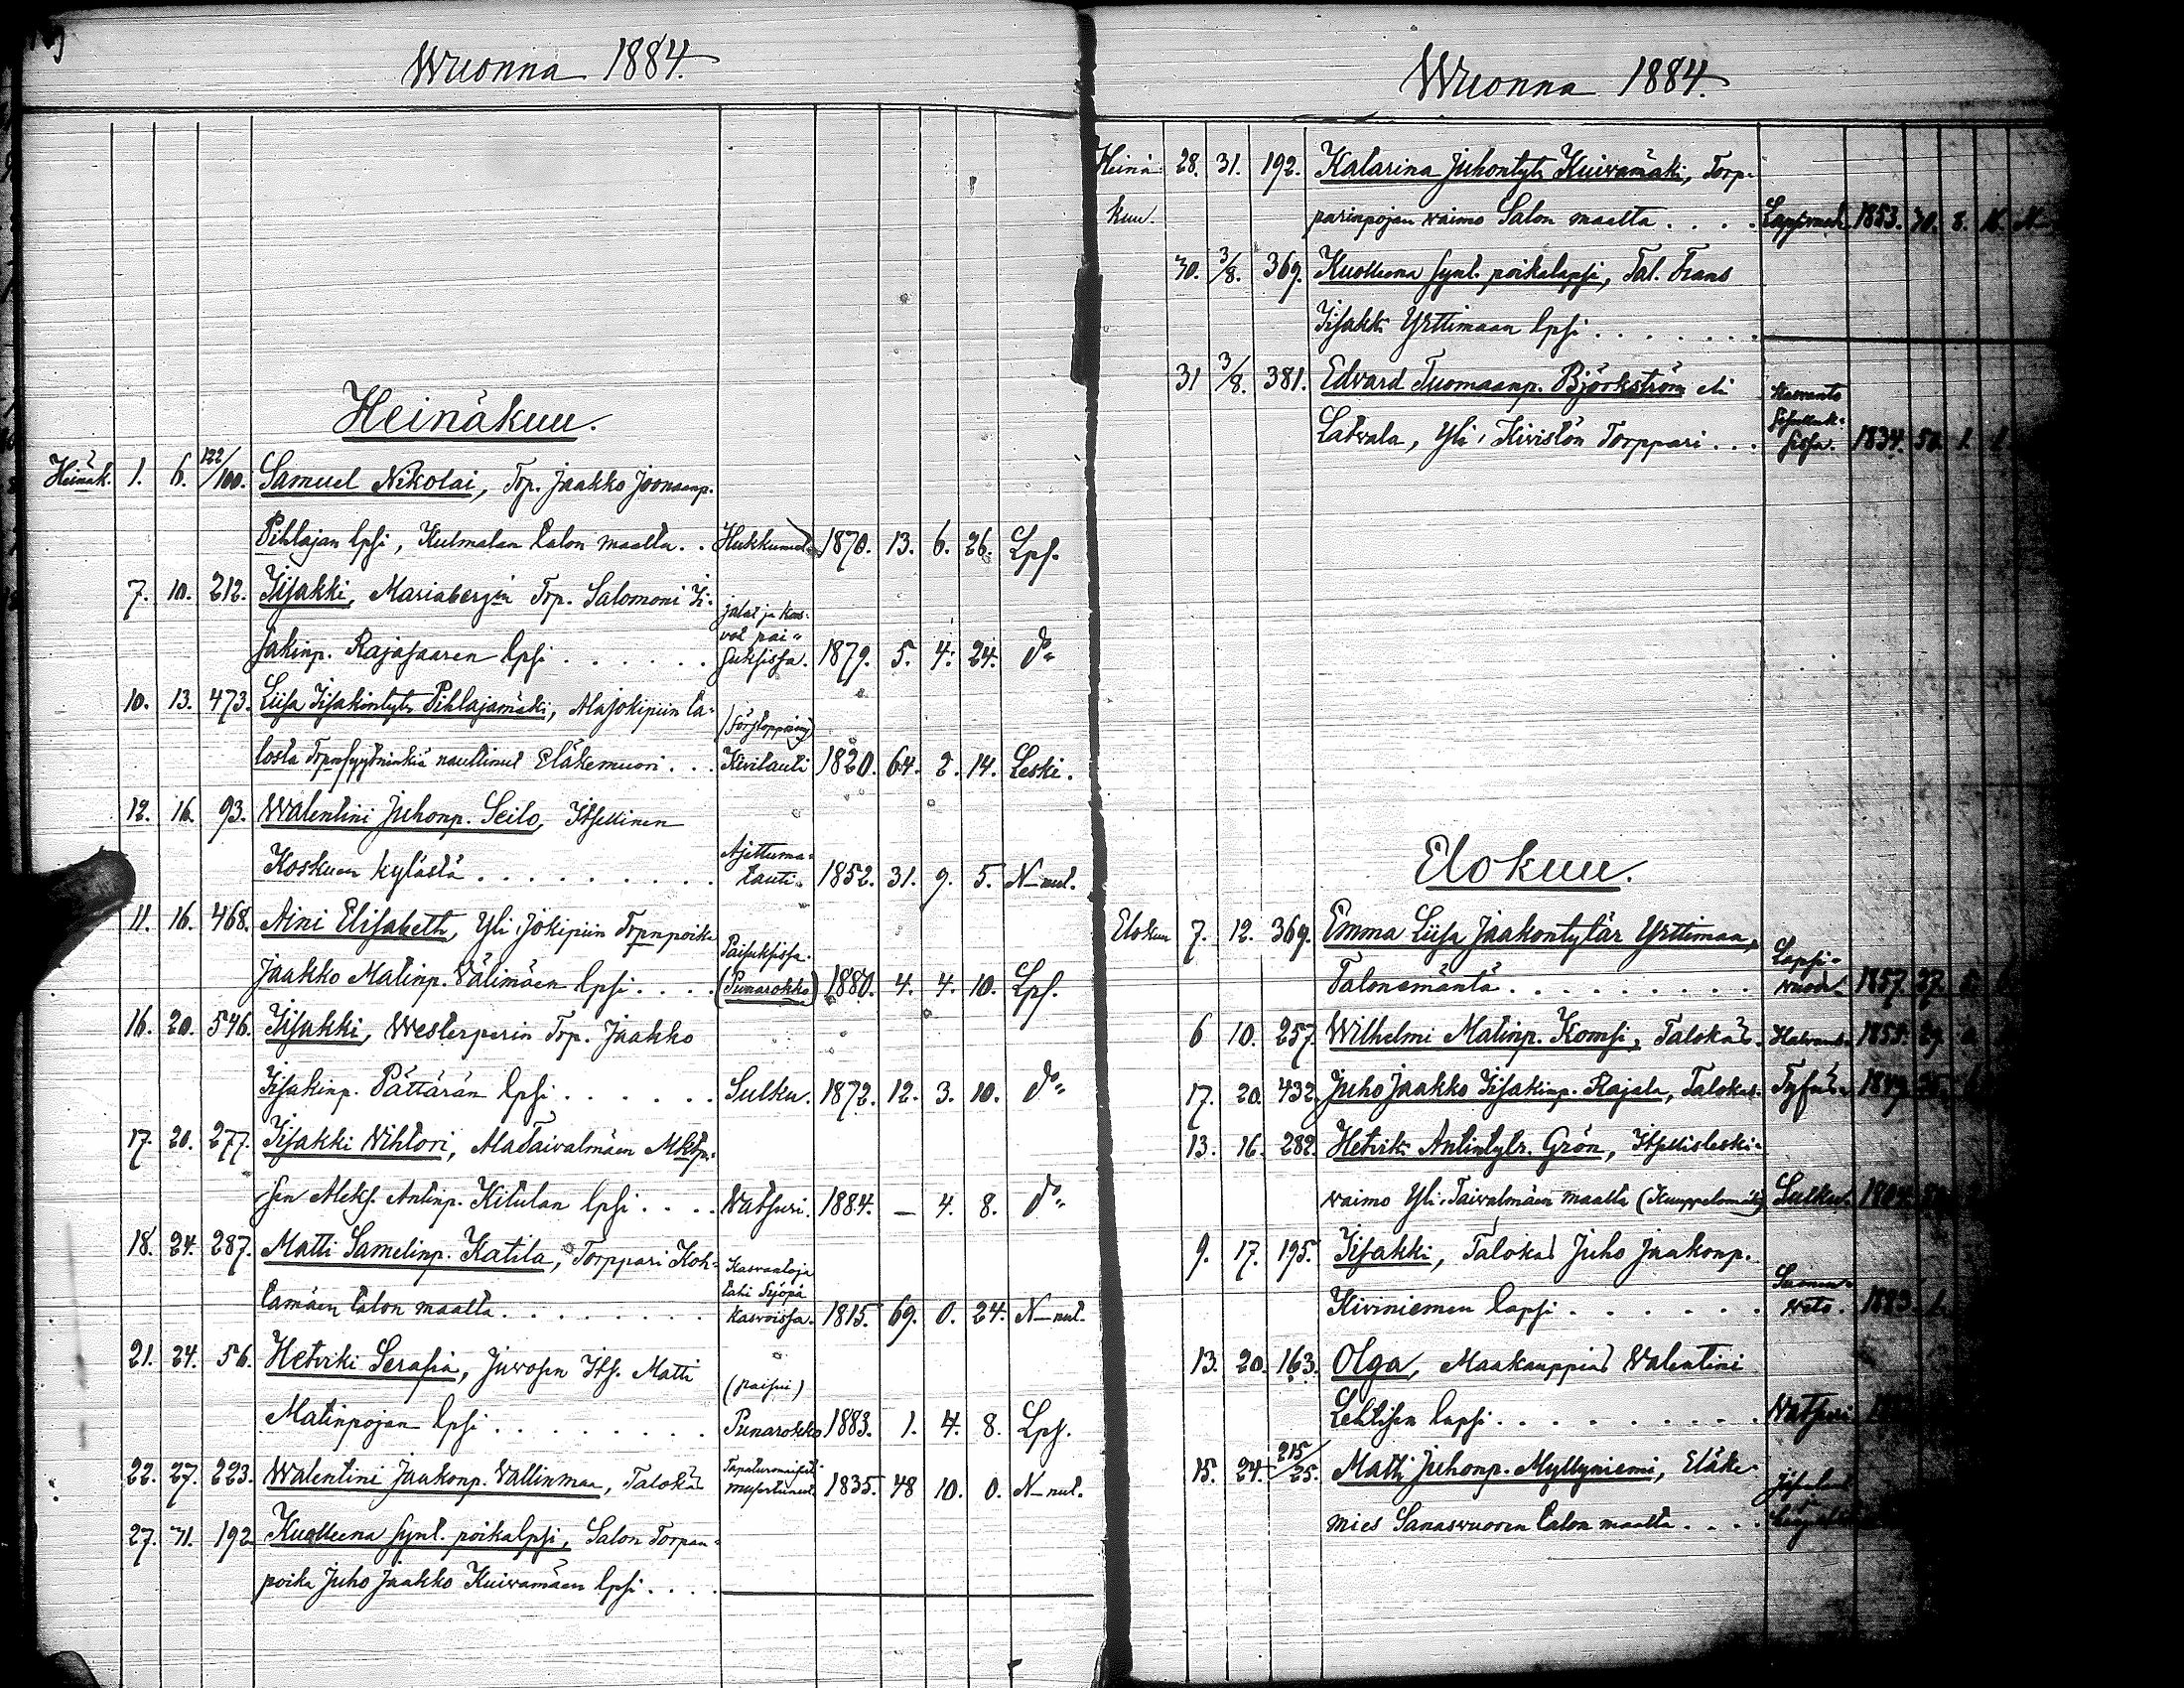 Wuonna 1884.
Heinäkuu.
Heinäk. 1. 6. 122/100. Samuel Nikolai, Trp. Jaakko Joonaanp.
Pihlajan lpsi, Kulmalan talon maalta. . Hukkunut. 1870. 13. 6. 26. Lps.
7. 10. 212. Iisakki, Mariabergin Trp. Salomoni Ii-
jalat ja kas-
vot pai-
sakinp. Rajasaaren lpsi . . . . . . suksissa. 1879. 5. 4. 24. d:o
10. 13. 473. Liisa Iisakintytr. Pihlajamäki, Alajokipiin ta-
(förstoppning)
losta Trpnsyytninkiä nauttinut Eläkemuori . . . Kivitauti 1820. 64. 2. 14. Leski.
12. 16. 93. Walentini Juhonp. Seilo, Itsellinen
Ajettuma-
Koskuen kylästä . . . . . . . . . tauti. 1852. 31. 9. 5. N-nut.
11. 16. 468. Aini Elisabeth, Yli Jokipiin Trpnpoika
Paisuksissa.
Jaakko Matinp. Välimäen lpsi . . . . (Punarokko) 1880. 4. 4. 10. Lps.
16. 20. 546. Iisakki, Westerperin Trp. Jaakko
Iisakinp. Pättärän lpsi . . . . . . Sulku. 1872. 12. 3. 10. d:o
17. 20. 277. Iisakki Wihtori, AlaTaivalmäen
sen Aleks. Antinp. Kitulan lpsi . . . . Watsuri. 1884. — 4. 8. d:o
18. 24. 287. Matti Samelinp. Katila, Torppari Koh-
Kasvantoja
tahi Syöpä
tamäen talon maalta . . . . . . . . kasvoissa. 1815. 69. 0. 24. N-nut.
21. 24. 56. Hetviki Serafia, Juwosen Its. Matti
(paisui)
Matinpojan lpsi . . . . . . . . Punarokko 1883. 1. 4. 8. Lps.
22. 27. 223. Walentini Jaakonp. Vallinmaa, Talokas
1835. 48 10. 0. N-nut.
27. 31. 192. Kuolleena synt. poikalpsi, Salon Torpan-
poika Juho Jaakko Kuivamäen lpsi . . . .
Wuonna 1884.
Heinä- 28. 31. 192. Katarina Juhontytr. Kuivamäki, Torp-
kuu. parinpojan vaimo Salon maalta . . . . Lapsivuod. 1853. 30. 8. 16. N-
30. 3/8. 369. Kuolleena synt. poikalapsi, Tal. Frans
Iisakki Yrttimaan lpsi . . . . . . .
31 3/8. 381. Edvard Tuomaanp. Björkström eli
Kasvanto
Latvala, Yli Kivistön Torppari . . . sissa. 1834. 50. 1.
Elokuu.
Elokuu 7. 12. 369. Emma Liisa Jaakontytär Yrttimaa,
Lapsi-
Talonemäntä . . . . . . . . . vuod. 1857. 27.
6 10. 257. Wilhelmi Matinp. Komsi, Talokas. Halvaus. 1855. 29.
17. 20. 432. Juho Jaakko Iisakinp. Rajala, Talokas. Tyfus. 1849.
13. 16. 282. Hetvik Antintytr. Grön, Itsellisleski-
vaimo Yli-Taivalmäen maalta (Kuuppelomäki) Sulku.
9. 17. 195. Iisakki, Talokas Juho Jaakonp.
Suonen-
Kiviniemen lapsi . . . . . . veto. 1883. 1.
13. 20. 163. Olga, Maakauppias Walentini
Lehtisen lapsi. . . . . . . . . . Watsuri
15. 24. 215/25. Matti Juhonp. Myllyniemi, Eläke-
mies Sanaswuoren talon maalta . . . .